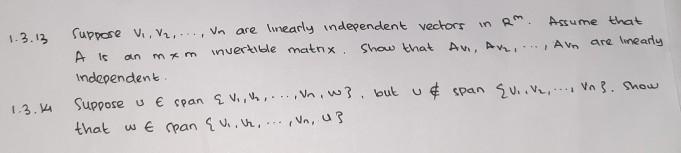 1.3.13 Suppose v₁, v₂, ..., vn are linearly independent vectors in Rᵐ. Assume that
A is an m×m invertible matrix. Show that Av₁, Av₂, ..., Avn are linearly
independent.
1.3.14 Suppose u ∈ span {v₁, v₂, ..., vn, w}, but u ∉ span {v₁, v₂, ..., vn}. Show
that w ∈ span {v₁, v₂, ..., vn, u}